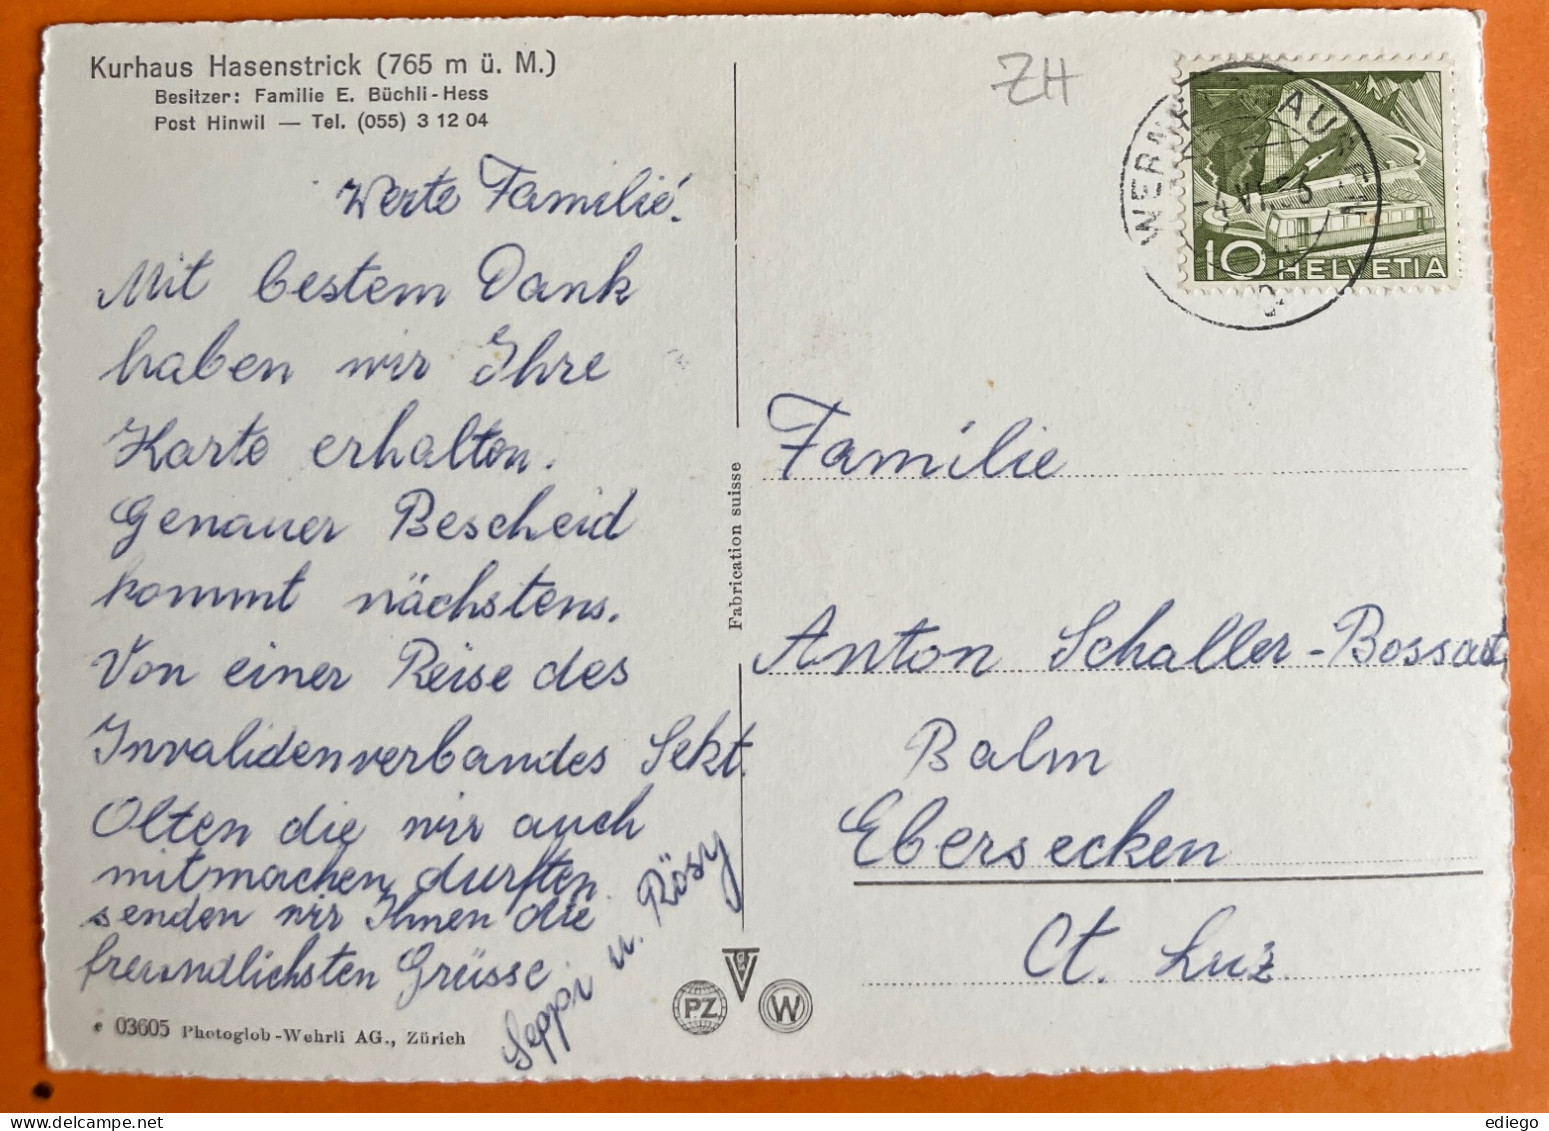 Kurhaus Hasenstrick (765 m ü. M.)
Besitzer: Familie E. Büchli-Hess
Post Hinwil — Tel. (055) 3 12 04
Werte Familie.
Mit bestem Dank
haben wir Ihre
Karte erhalten.
Genauer Bescheid
kommt nächstens.
Von einer Reise des
Invalidenverbandes Sekt.
Olten die wir auch
mitmachen durften
senden wir Ihnen die
freundlichsten Grüsse
Seppi u. Rösy
03605 Photoglob-Wehrli AG., Zürich
Fabrication suisse
PZ
W
ZH
10 HELVETIA
Familie
Anton Schaller-Bossart
Balm
Ebersecken
Ct. Luz
ediego